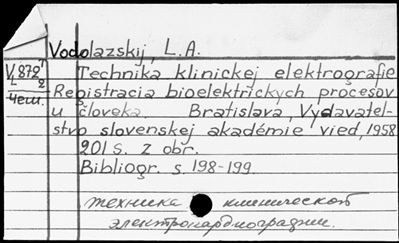 Vodolazskij, L.A.
V 872
L 2
Чеш.
Technika klinickej elektrografie
Registracia bioelektrickych procesov
u človeka. Bratislava, Vydavatel-
stvo slovenskej akadémie vied, 1958
201 s. z obr.
Bibliogr. s. 198-199.
техника клинической
электрокардиографии.